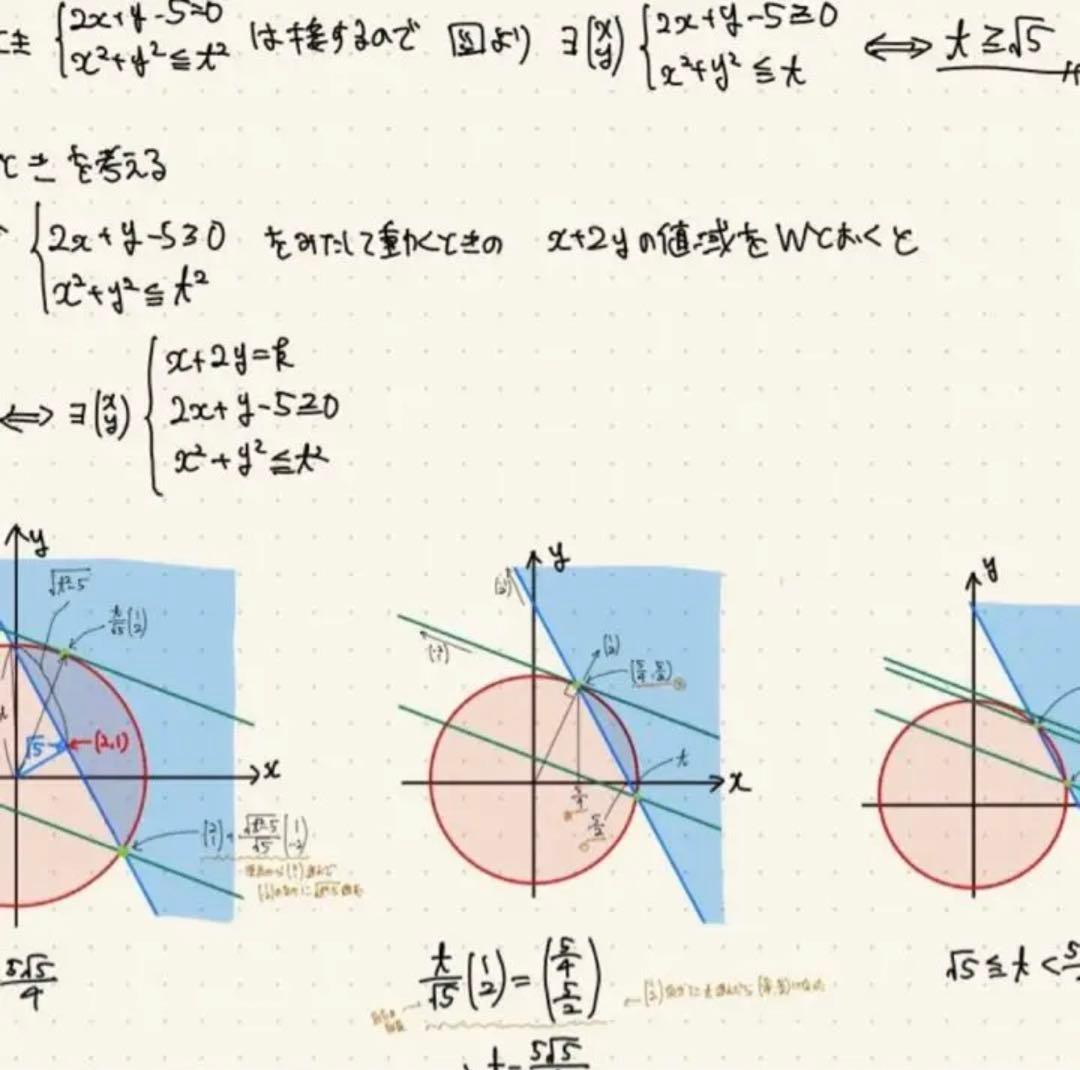 2x+y-5=0
x²+y²≦t² は接するので 図より ∃(x y) { 2x+y-5≧0
x²+y²≦t ⟺ t≧√5
ときを考える
2x+y-5≧0 をみたして動くときの x+2yの値域をWとおくと
x²+y²≦t²
⟺ ∃(x y) { x+2y=k
2x+y-5≧0
x²+y²≦t²
y
√t²-5
t/√5 (1 2)
√5
(2,1)
x
(2 1) + √t²-5/√5 (1 -2)
y
(1 2)
(5/4, 5/2)
t
x
5/4
5/2
y
5√5/4
t/√5 (1 2) = (5/4 5/2)
√5≦t<5
t=5√5